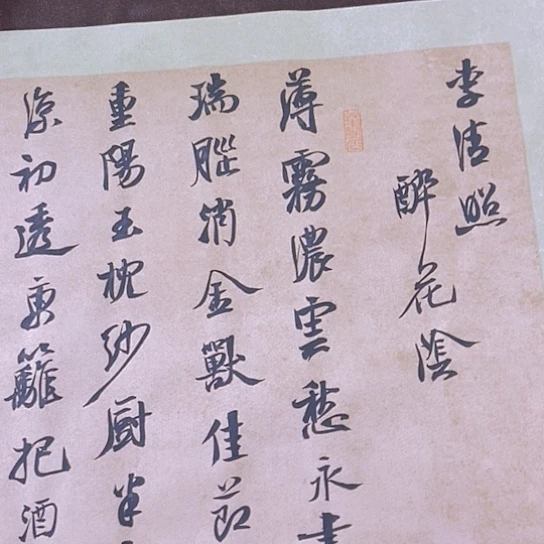 李清照
醉花陰
薄霧濃雲愁永晝
瑞腦消金獸佳節
重陽玉枕紗厨半
涼初透東籬把酒